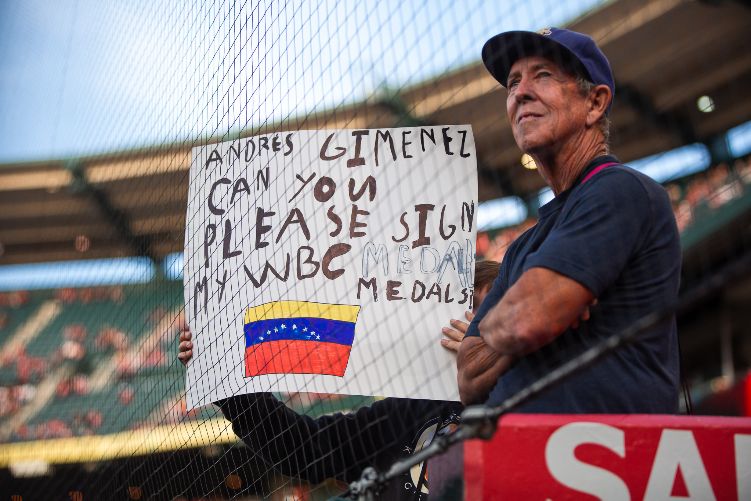 ANDRÉS GIMENEZ
CAN YOU
PLEASE SIGN
MY WBC MEDALS
MEDALS!
SAL